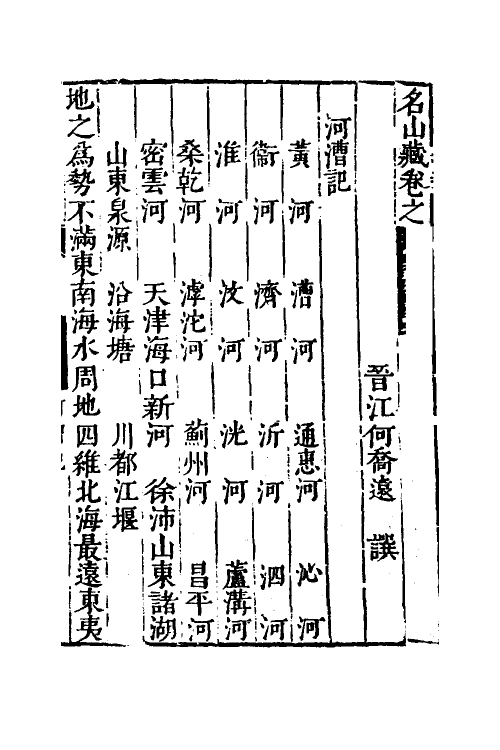 名山藏卷之
晉江何喬遠　譔
河漕記
黃河　漕河　通惠河　沁河
衞河　濟河　沂河　泗河
淮河　汶河　洸河　蘆溝河
桑乾河　滹沱河　薊州河　昌平河
密雲河　天津海口新河　徐沛山東諸湖
山東泉源　沿海塘　川都江堰
地之爲勢不滿東南海水周地四維北海最遠東夷